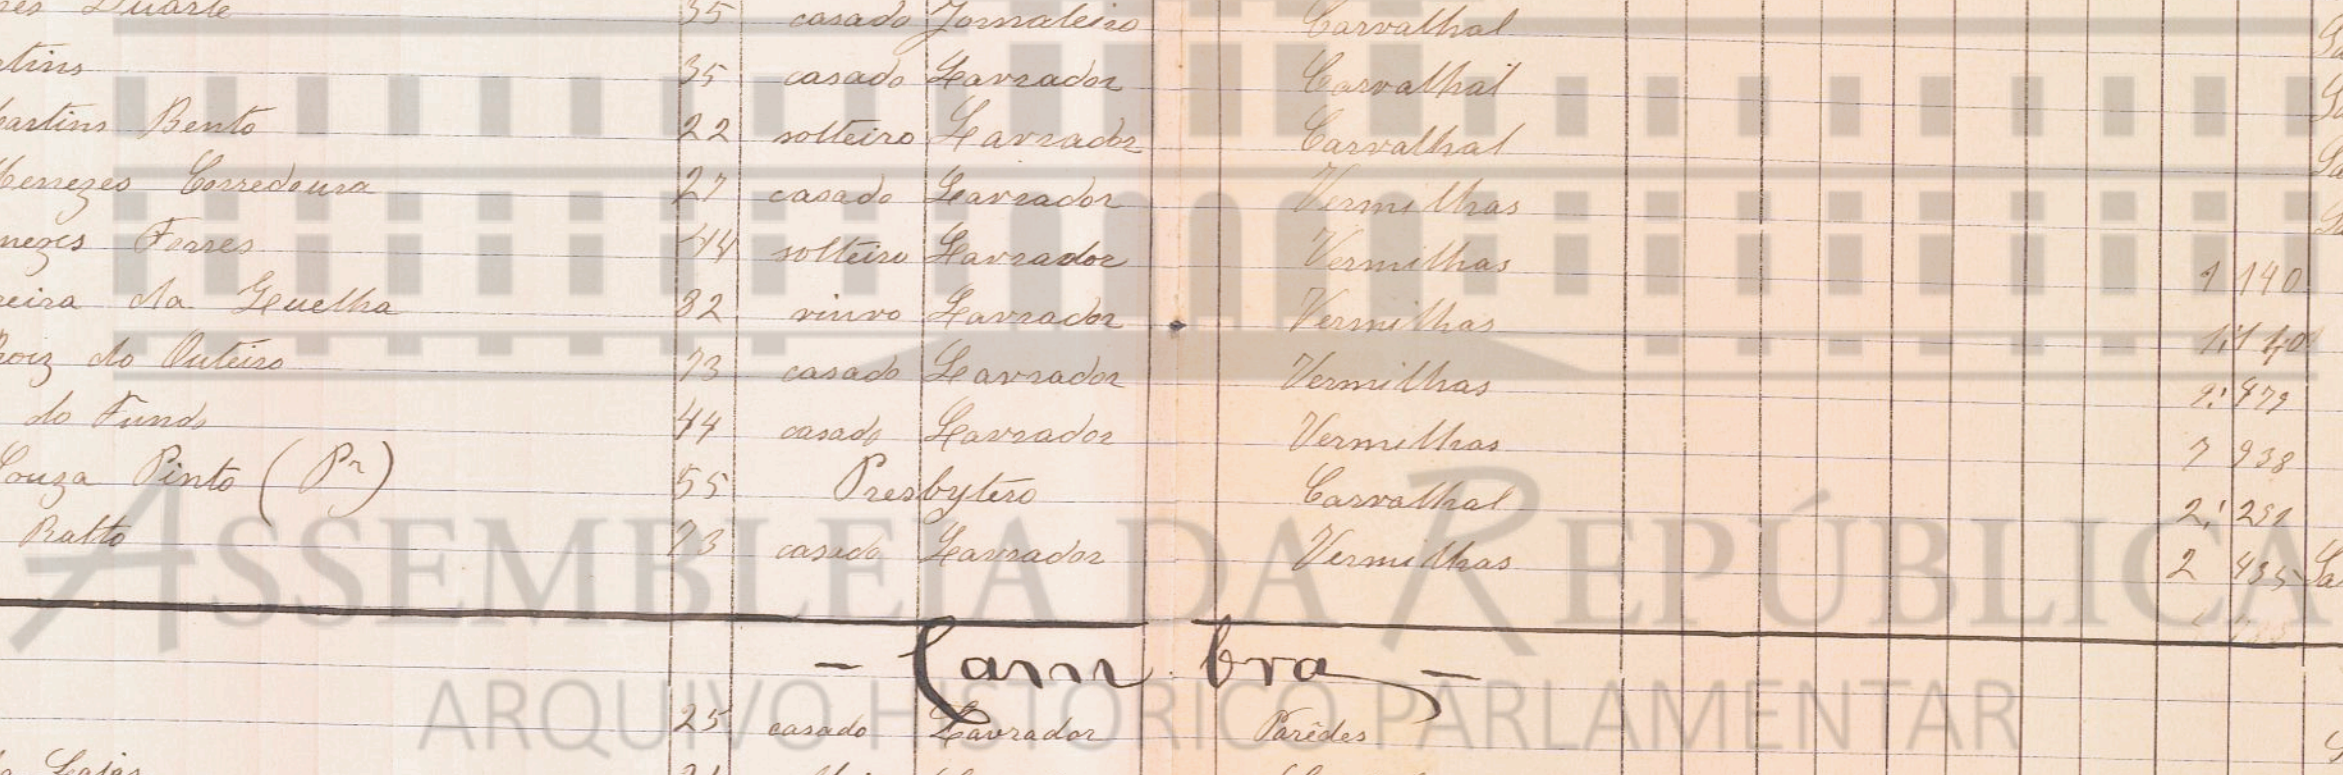 Duarte 35 casado Jornaleiro Carvalhal
tins 35 casado Lavrador Carvalhal
artins Bento 22 solteiro Lavrador Carvalhal
Menezes Corredoura 27 casado Lavrador Vermilhas
nezes Torres 44 solteiro Lavrador Vermilhas 1 140
reira da Quelha 32 viuvo Lavrador Vermilhas 1:140
Roiz do Outeiro 73 casado Lavrador Vermilhas
do Fundo 44 casado Lavrador Vermilhas 7 938
Souza Pinto (Pe) 55 Presbytero Carvalhal
Ralto 73 casado Lavrador Vermilhas 2 435
ASSEMBLEIA DA REPÚBLICA
- Cambra -
ARQUIVO HISTÓRICO PARLAMENTAR
25 casado Lavrador Parêdes